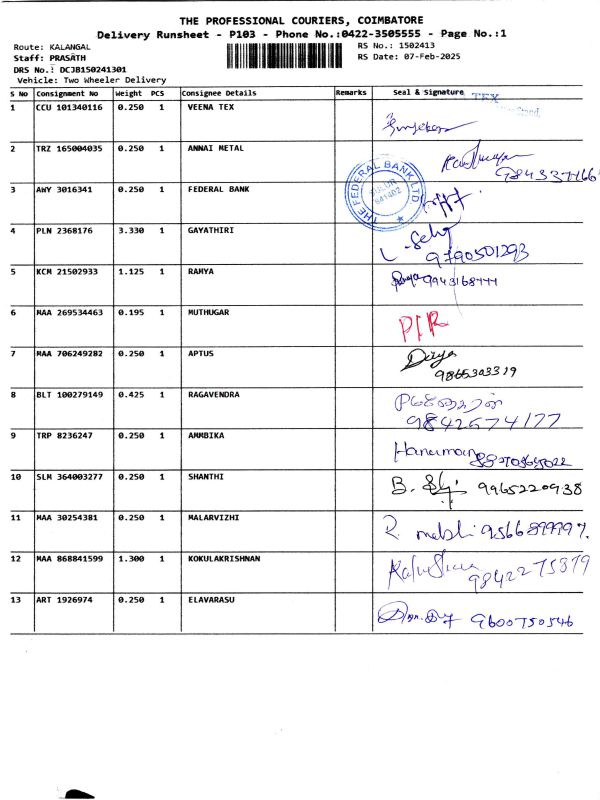 THE PROFESSIONAL COURIERS, COIMBATORE
Delivery Runsheet - P103 - Phone No.:0422-3505555 - Page No.:1
Route: KALANGAL RS No.: 1502413
Staff: PRASATH RS Date: 07-Feb-2025
DRS No.: DCJB150241301
Vehicle: Two Wheeler Delivery
S No Consignment No Weight PCS Consignee Details Remarks Seal & Signature TEX
1 CCU 101340116 0.250 1 VEENA TEX
2 TRZ 165004035 0.250 1 ANNAI METAL
3 AWY 3016341 0.250 1 FEDERAL BANK THE FEDERAL BANK LTD.
4 PLN 2368176 3.330 1 GAYATHIRI 9790501293
5 KCM 21502933 1.125 1 RAMYA
6 MAA 269534463 0.195 1 MUTHUGAR P/R
7 MAA 706249282 0.250 1 APTUS Divya
9865303319
8 BLT 100279149 0.425 1 RAGAVENDRA
9842574177
9 TRP 8236247 0.250 1 AMMBIKA
10 SLM 364003277 0.250 1 SHANTHI B. 9965220938
11 MAA 30254381 0.250 1 MALARVIZHI R.
12 MAA 868841599 1.300 1 KOKULAKRISHNAN
9842275819
13 ART 1926974 0.250 1 ELAVARASU 9600750546